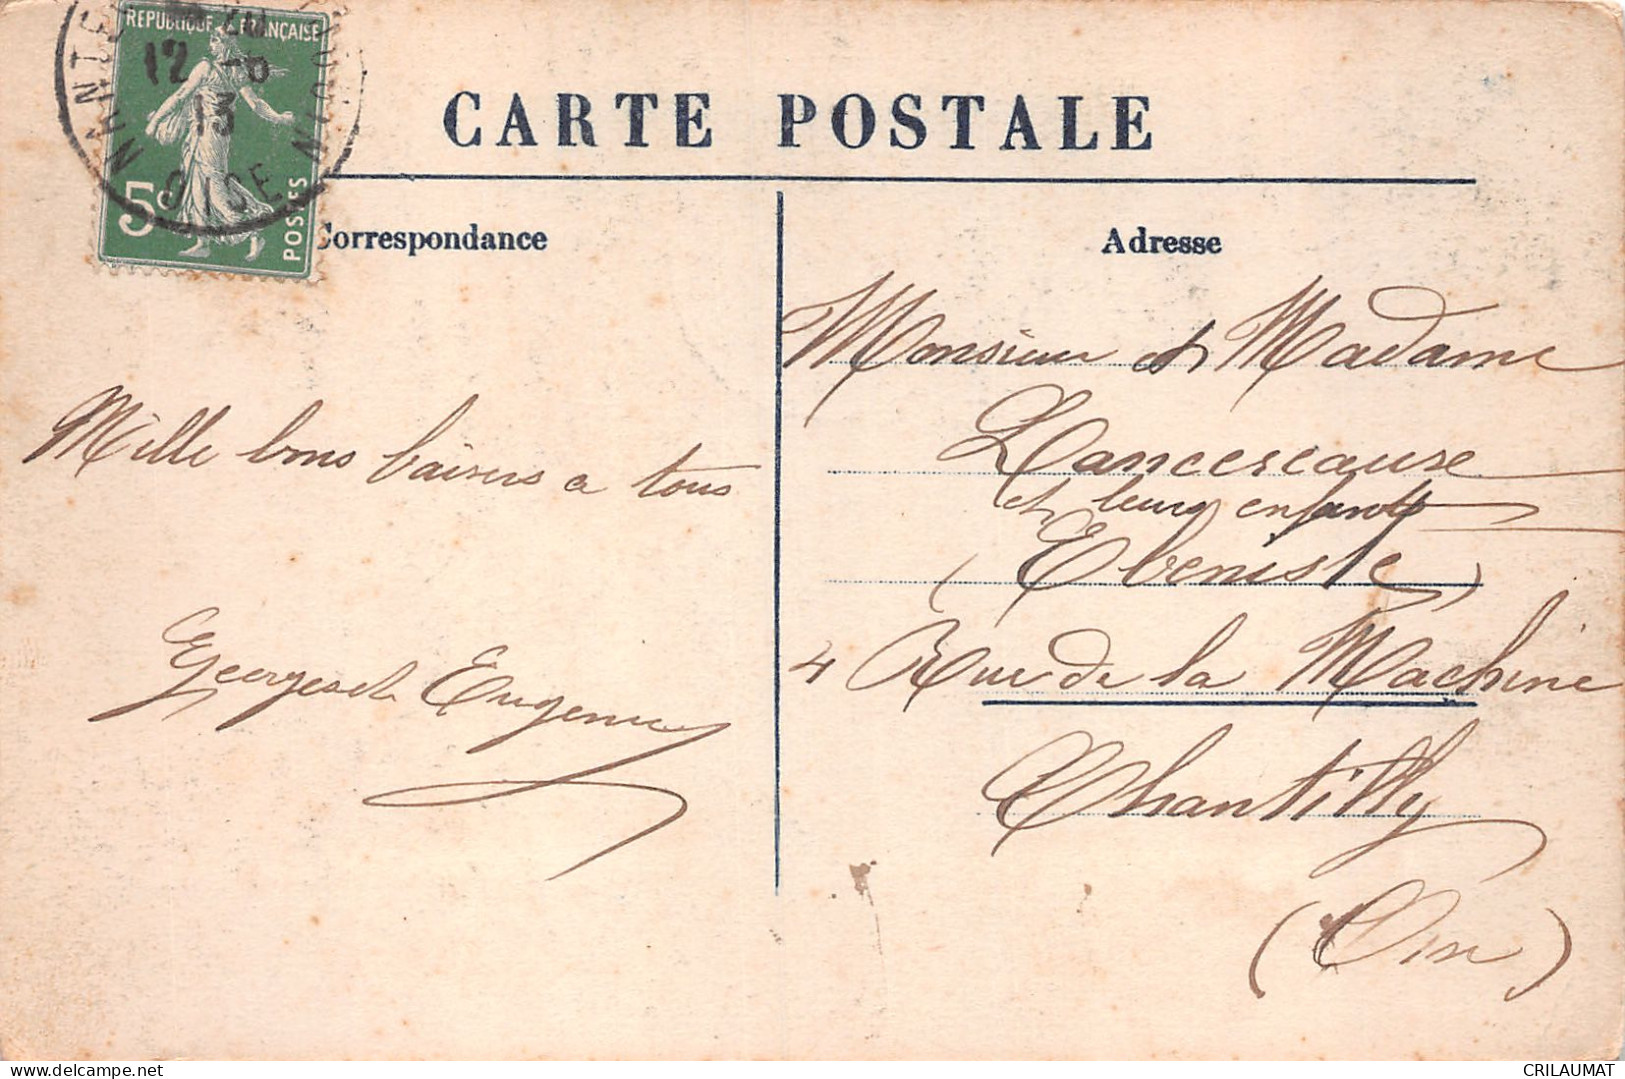 REPUBLIQUE FRANÇAISE
12 -8
13
OISE
5c
POSTES
CARTE POSTALE
Correspondance
Adresse
Monsieur et Madame
Lancereause
et leurs enfants
(Ebeniste)
4 Rue de la Machine
Chantilly
(Oise)
Mille bons baisers a tous
Georges et Eugenie
CRILAUMAT